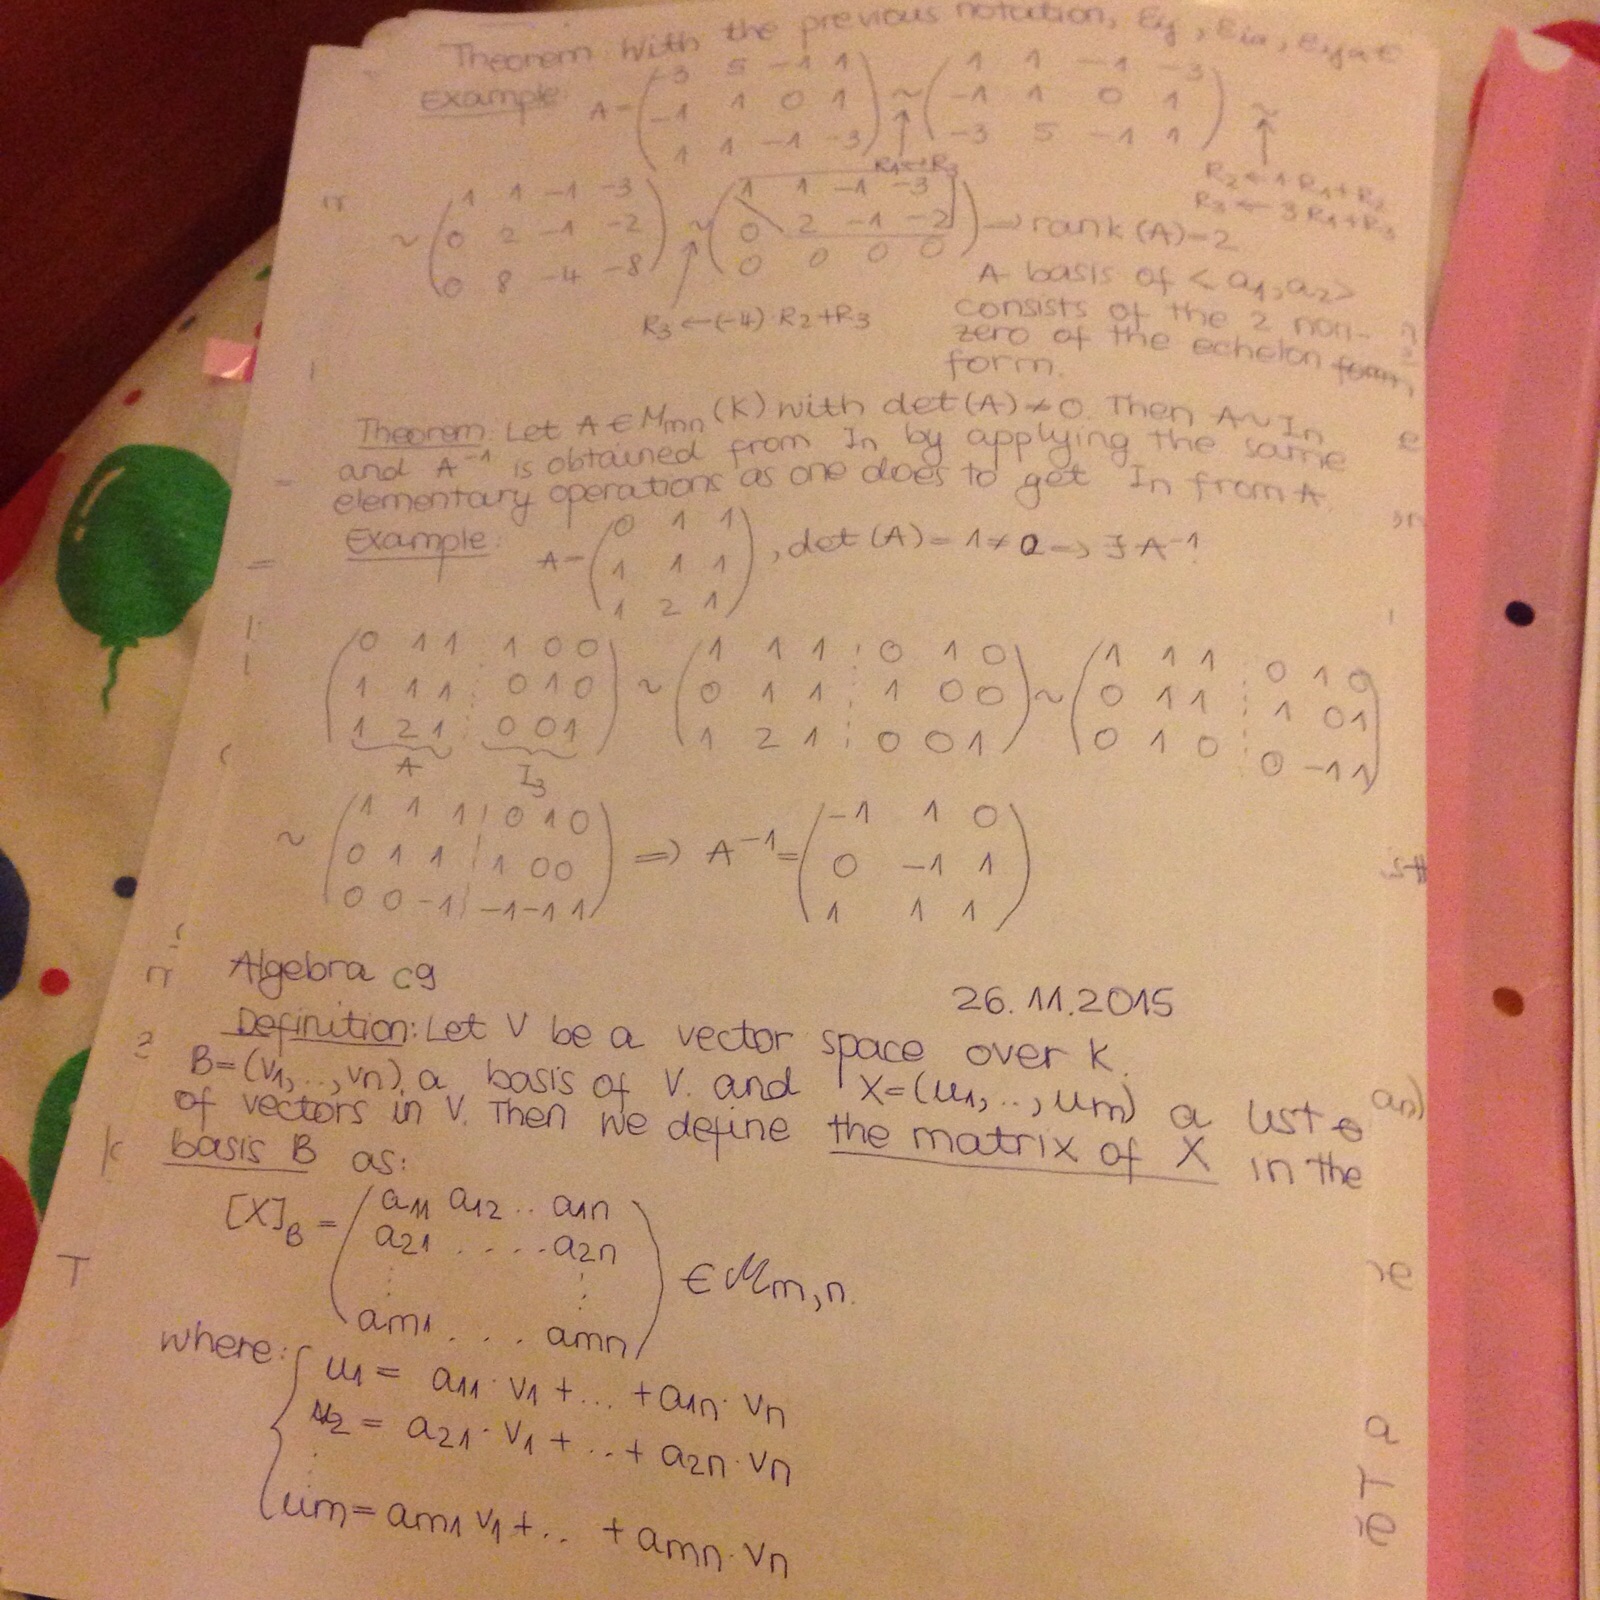 Theorem With the previous notation, Eij, Eia, Eija ∈
Example: A = ( -3 5 -1 1 ) ~ ( 1 1 -1 -3 ) ~
( -1 1 0 1 ) ( -1 1 0 1 )
( 1 1 -1 -3 ) ( -3 5 -1 1 )
R1↔R3
R2 ← 1 R1+R2
R3 ← 3 R1+R3
~ ( 1 1 -1 -3 ) ~ ( 1 1 -1 -3 ) → rank (A)=2
( 0 2 -1 -2 ) ( 0 2 -1 -2 )
( 0 8 -4 -8 ) ( 0 0 0 0 )
R3 ←(-4)·R2+R3
A basis of <a1,a2>
consists of the 2 non-
zero of the echelon form,
form.
Theorem: Let A∈Mmn(K) with det(A)≠0. Then A~In
and A⁻¹ is obtained from In by applying the same
elementary operations as one does to get In from A.
Example: A= ( 0 1 1 ) , det(A)=1≠0 => ∃ A⁻¹
( 1 1 1 )
( 1 2 1 )
( 0 1 1 ¦ 1 0 0 ) ~ ( 1 1 1 ¦ 0 1 0 ) ~ ( 1 1 1 ¦ 0 1 0 )
( 1 1 1 ¦ 0 1 0 ) ( 0 1 1 ¦ 1 0 0 ) ( 0 1 1 ¦ 1 0 1 )
( 1 2 1 ¦ 0 0 1 ) ( 1 2 1 ¦ 0 0 1 ) ( 0 1 0 ¦ 0 -1 1 )
A I3
~ ( 1 1 1 ¦ 0 1 0 ) => A⁻¹= ( -1 1 0 )
( 0 1 1 ¦ 1 0 0 ) ( 0 -1 1 )
( 0 0 -1 ¦ -1 -1 1 ) ( 1 1 1 )
Algebra c9
26.11.2015
Definition: Let V be a vector space over K.
B=(v1,..,vn) a basis of V. and X=(u1,..,um) a list o
of vectors in V. Then we define the matrix of X in the
basis B as:
[X]B = ( a11 a12 .. a1n )
( a21 .... a2n ) ∈ Mm,n.
( am1 ... amn )
where: { u1 = a11·v1+... +a1n·vn
u2 = a21·v1+..+a2n·vn
um=am1 v1+.. +amn·vn